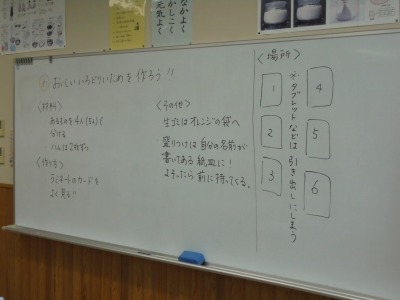 なかよく
かしこく
元気よく
めあて おいしいいろどりいためを作ろう!!
<材料>
あるものを4人(5人)で
分ける
ハムは2枚ずつ
<作り方>
ラミネートのカードを
よく見る!!
<その他>
生ゴミはオレンジの袋へ
盛りつけは自分の名前が
書いてある紙皿に!
よそったら前に持ってくる。
<場所>
1
2
3
※タブレットなどは引き出しにしまう
4
5
6